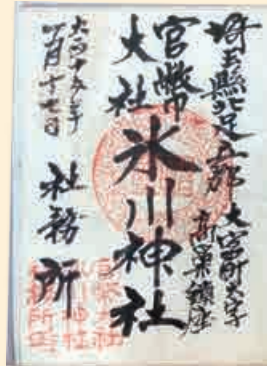 埼玉縣北足立郡大宮町大字
高鼻鎮座
官幣
大社
氷川神社
大正十五年
月十七日
社務所